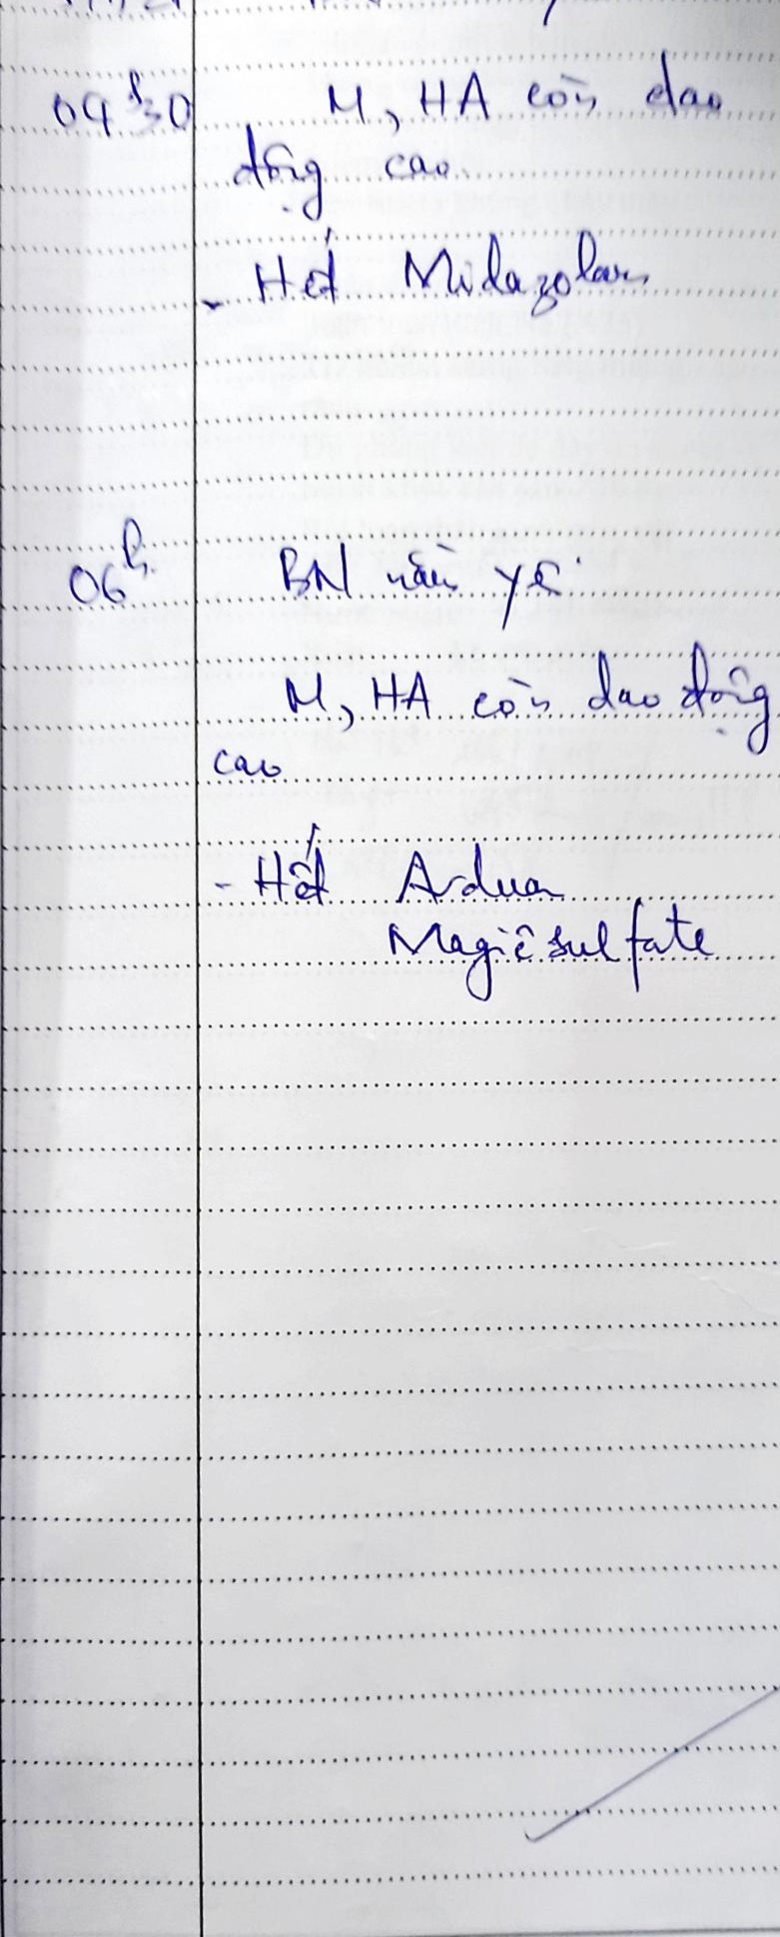 04h30 M, HA còn dao
động cao
- Hết Midazolam
06h BN nằm yên
M, HA còn dao động
cao
- Hết Arduan
Magiêsulfate